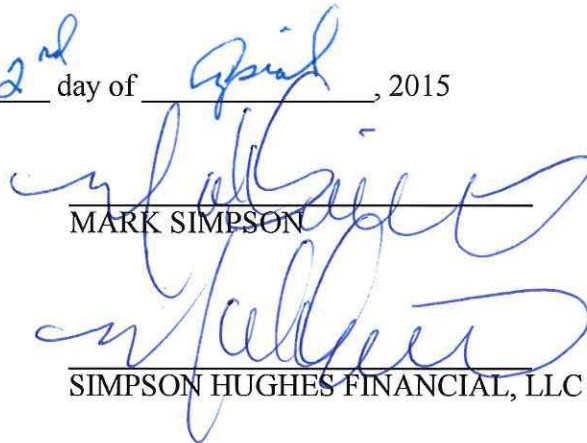 2nd day of April, 2015
MARK SIMPSON
SIMPSON HUGHES FINANCIAL, LLC